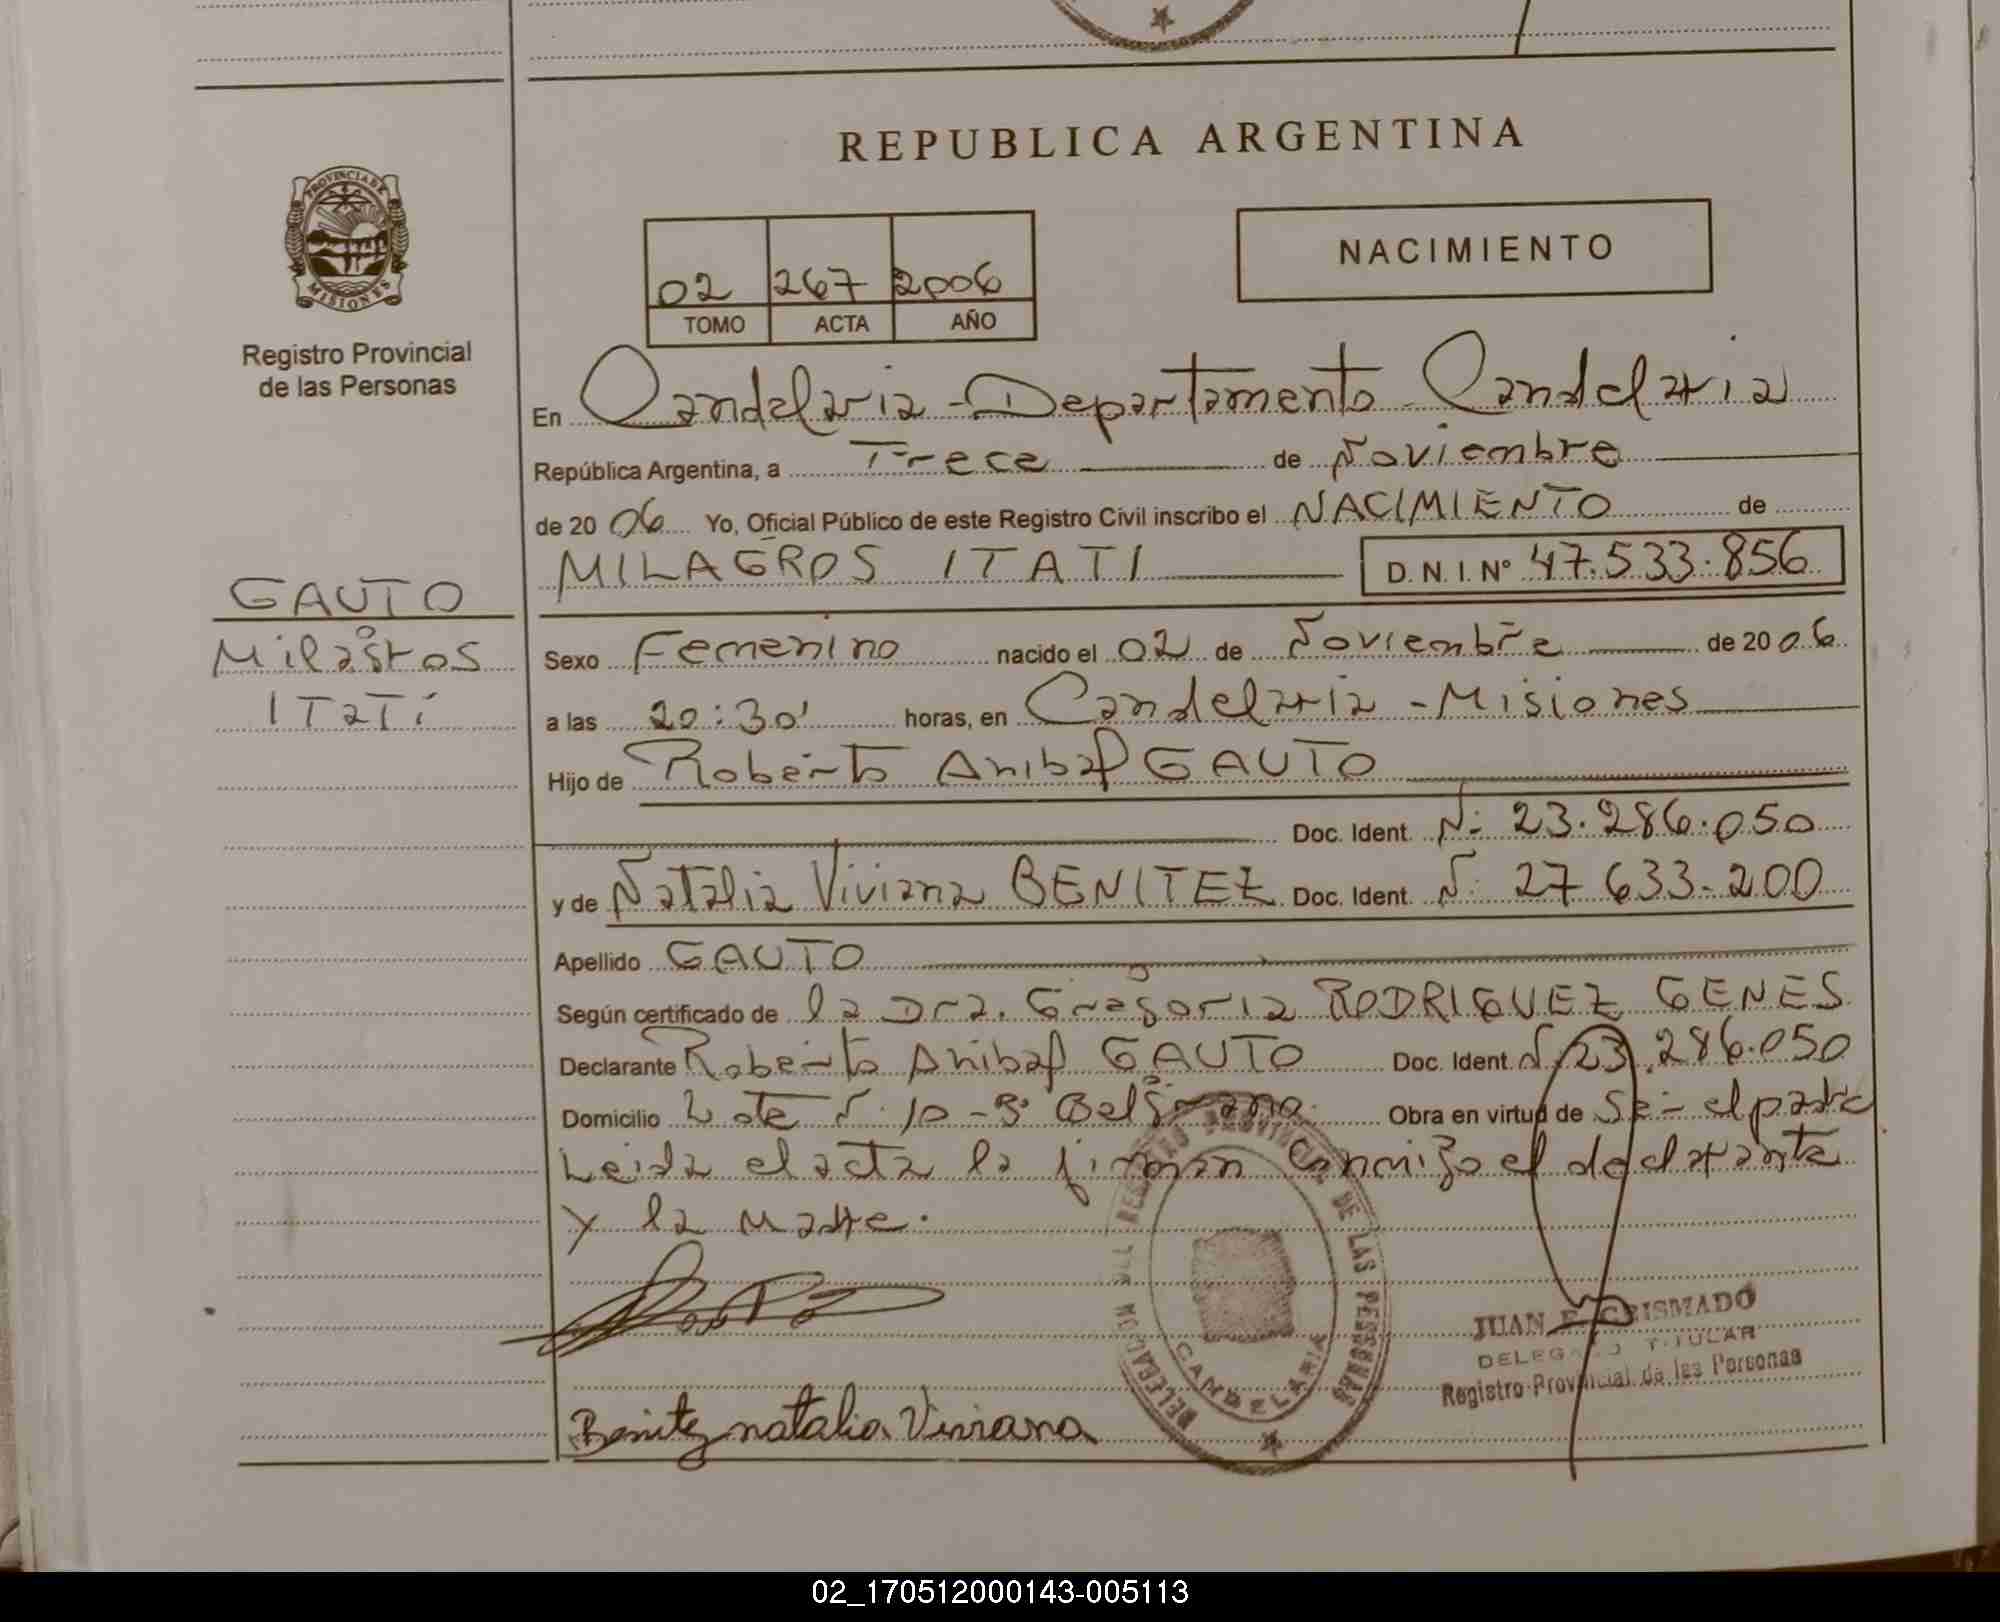 REPUBLICA ARGENTINA
PROVINCIA DE
MISIONES
Registro Provincial
de las Personas
02 267 2006
TOMO ACTA AÑO
NACIMIENTO
En Candelaria - Departamento Candelaria
República Argentina, a Trece de Noviembre
de 20 06 Yo, Oficial Público de este Registro Civil inscribo el NACIMIENTO de
MILAGROS ITATI D.N.I. Nº 47.533.856
GAUTO
Milagros
ITATi
Sexo Femenino nacido el 02 de Noviembre de 20 06
a las 20:30' horas, en Candelaria - Misiones
Hijo de Roberto Anibal GAUTO
Doc. Ident. N: 23.286.050
y de Natalia Viviana BENITEZ Doc. Ident. N: 27.633.200
Apellido GAUTO
Según certificado de la Dra. Gregoria RODRIGUEZ GENES
Declarante Roberto Anibal GAUTO Doc. Ident. N 23.286.050
Domicilio Lote N: 10 - Bº Belgrano Obra en virtud de Ser el padre
Leida el acta la firman conmigo el declarante
y la Madre.
REGISTRO PROVINCIAL DE LAS PERSONAS
CANDELARIA
JUAN E. GRISMADO
DELEGADO TITULAR
Registro Provincial de las Personas
Benitez natalia Viviana
02_170512000143-005113